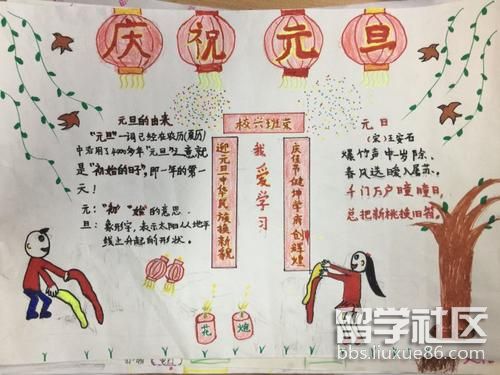 庆祝元旦
元旦的由来
"元旦"一词已经在农历(夏历)
中沿用了4000多年"元旦"之意就
是"初始的日子",即一年的第一
天!
元:"初""始"的意思.
旦:象形字,表示太阳从地平
线上升起的形状.
校兴班荣
迎元旦中华民族换新貌
我爱学习
庆佳节健坤学府创辉煌
元日
(宋)王安石
爆竹声中一岁除,
春风送暖入屠苏.
千门万户曈曈日,
总把新桃换旧符.
花炮
留学社区
bbs.liuxue86.com